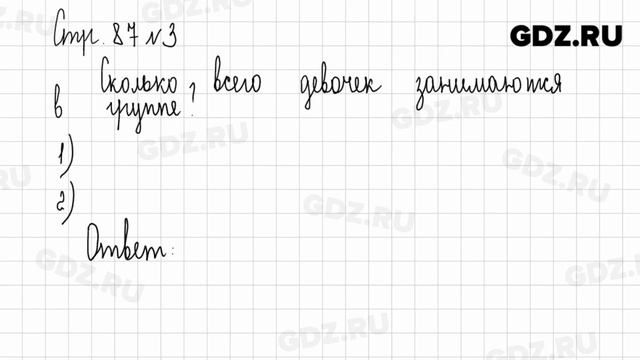 Стр. 87 №3
GDZ.RU
Сколько всего девочек занимаются
в группе?
1)
2)
Ответ:
GDZ.RU
GDZ.RU
GDZ.RU
GDZ.RU
GDZ.RU
GDZ.RU
GDZ.RU
GDZ.RU